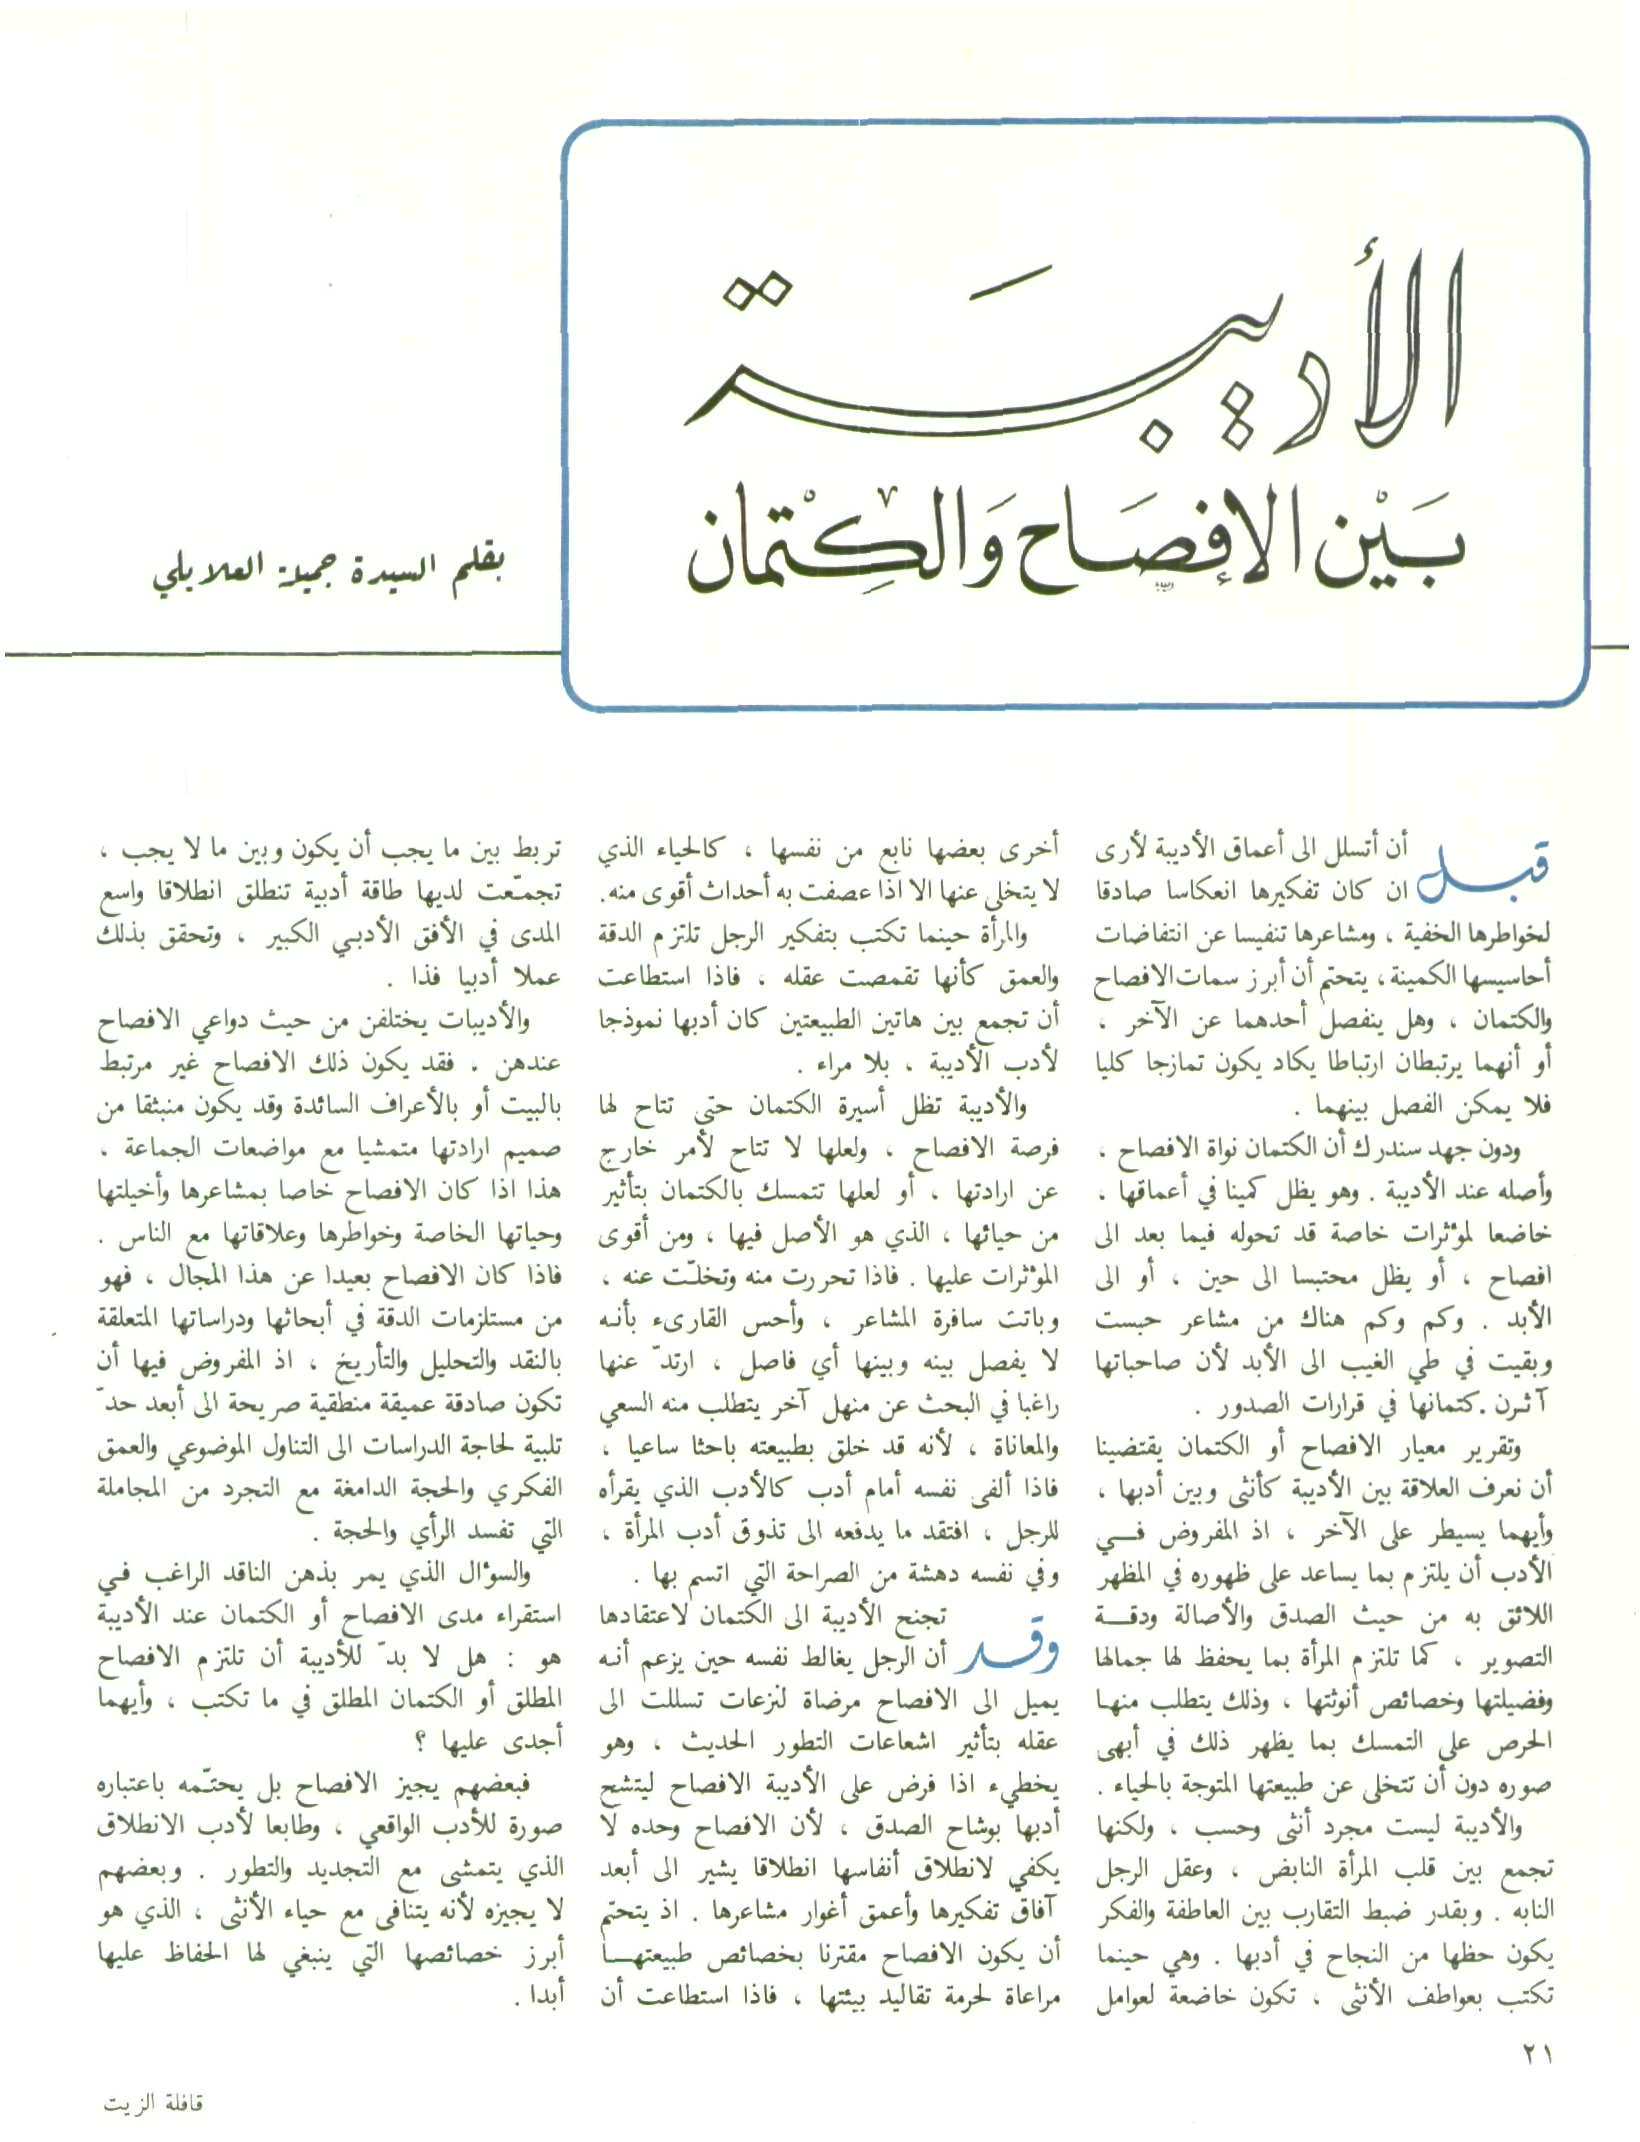 الأديبَة
بَيْن الإفصَاح وَالكتْمان
بقلم السيدة جميلة العلايلي
قبل أن أتسلل الى أعماق الأديبة لأرى
ان كان تفكيرها انعكاسا صادقا
لخواطرها الخفية ، ومشاعرها تنفيسا عن انتفاضات
أحاسيسها الكمينة ، يتحتم أن أبرز سمات الافصاح
والكتمان ، وهل ينفصل أحدهما عن الآخر ،
أو أنهما يرتبطان ارتباطا يكاد يكون تمازجا كليا
فلا يمكن الفصل بينهما .
ودون جهد سندرك أن الكتمان نواة الافصاح ،
وأصله عند الأديبة . وهو يظل كمينا في أعماقها ،
خاضعا لمؤثرات خاصة قد تحوله فيما بعد الى
افصاح ، أو يظل محتبسا الى حين ، أو الى
الأبد . وكم وكم هناك من مشاعر حبست
وبقيت في طي الغيب الى الأبد لأن صاحباتها
آثرن . كتمانها في قرارات الصدور .
وتقرير معيار الافصاح أو الكتمان يقتضينا
أن نعرف العلاقة بين الأديبة كأنثى وبين أدبها ،
وأيهما يسيطر على الآخر ، اذ المفروض فــي
الأدب أن يلتزم بما يساعد على ظهوره في المظهر
اللائق به من حيث الصدق والأصالة ودقــة
التصوير ، كما تلتزم المرأة بما يحفظ لها جمالها
وفضيلتها وخصائص أنوثتها ، وذلك يتطلب منهـا
الحرص على التمسك بما يظهر ذلك في أبهى
صوره دون أن تتخلى عن طبيعتها المتوجة بالحياء .
والأديبة ليست مجرد أنثى وحسب ، ولكنها
تجمع بين قلب المرأة النابض ، وعقل الرجل
النابه . وبقدر ضبط التقارب بين العاطفة والفكر
يكون حظها من النجاح في أدبها . وهي حينما
تكتب بعواطف الأنثى ، تكون خاضعة لعوامل
أخرى بعضها نابع من نفسها ، كالحياء الذي
لا يتخلى عنها الا اذا عصفت به أحداث أقوى منه .
والمرأة حينما تكتب بتفكير الرجل تلتزم الدقة
والعمق كأنها تقمصت عقله ، فاذا استطاعت
أن تجمع بين هاتين الطبيعتين كان أدبها نموذجا
لأدب الأديبة ، بلا مراء .
والأديبة تظل أسيرة الكتمان حتى تتاح لها
فرصة الافصاح ، ولعلها لا تتاح لأمر خارج
عن ارادتها ، أو لعلها تتمسك بالكتمان بتأثير
من حيائها ، الذي هو الأصل فيها ، ومن أقوى
المؤثرات عليها . فاذا تحررت منه وتخلّت عنه ،
وباتت سافرة المشاعر ، وأحس القارىء بأنـه
لا يفصل بينه وبينها أي فاصل ، ارتدّ عنها
راغبا في البحث عن منهل آخر يتطلب منه السعي
والمعاناة ، لأنه قد خلق بطبيعته باحثا ساعيا ،
فاذا ألفى نفسه أمام أدب كالأدب الذي يقرأه
للرجل ، افتقد ما يدفعه الى تذوق أدب المرأة ،
وفي نفسه دهشة من الصراحة التي اتسم بها .
وقد تجنح الأديبة الى الكتمان لاعتقادها
أن الرجل يغالط نفسه حين يزعم أنـه
يميل الى الافصاح مرضاة لنزعات تسللت الى
عقله بتأثير اشعاعات التطور الحديث ، وهو
يخطيء اذا فرض على الأديبة الافصاح ليتشح
أدبها بوشاح الصدق ، لأن الافصاح وحده لا
يكفي لانطلاق أنفاسها انطلاقا يشير الى أبعد
آفاق تفكيرها وأعمق أغوار مشاعرها . اذ يتحتم
أن يكون الافصاح مقترنا بخصائص طبيعتهــا
مراعاة لحرمة تقاليد بيئتها ، فاذا استطاعت أن
تربط بين ما يجب أن يكون وبين ما لا يجب ،
تجمّعت لديها طاقة أدبية تنطلق انطلاقا واسع
المدى في الأفق الأدبي الكبير ، وتحقق بذلك
عملا أدبيا فذا .
والأديبات يختلفن من حيث دواعي الافصاح
عندهن ، فقد يكون ذلك الافصاح غير مرتبط
بالبيت أو بالأعراف السائدة وقد يكون منبثقا من
صميم ارادتها متمشيا مع مواضعات الجماعة ،
هذا اذا كان الافصاح خاصا بمشاعرها وأخيلتها
وحياتها الخاصة وخواطرها وعلاقاتها مع الناس .
فاذا كان الافصاح بعيدا عن هذا المجال ، فهو
من مستلزمات الدقة في أبحاثها ودراساتها المتعلقة
بالنقد والتحليل والتأريخ ، اذ المفروض فيها أن
تكون صادقة عميقة منطقية صريحة الى أبعد حدّ
تلبية لحاجة الدراسات الى التناول الموضوعي والعمق
الفكري والحجة الدامغة مع التجرد من المجاملة
التي تفسد الرأي والحجة .
والسؤال الذي يمر بذهن الناقد الراغب في
استقراء مدى الافصاح أو الكتمان عند الأديبة
هو : هل لا بدّ للأديبة أن تلتزم الافصاح
المطلق أو الكتمان المطلق في ما تكتب ، وأيهما
أجدى عليها ؟
فبعضهم يجيز الافصاح بل يحتّمه باعتباره
صورة للأدب الواقعي ، وطابعا لأدب الانطلاق
الذي يتمشى مع التجديد والتطور . وبعضهم
لا يجيزه لأنه يتنافى مع حياء الأنثى ، الذي هو
أبرز خصائصها التي ينبغي لها الحفاظ عليها
أبدا .
٢١
قافلة الزيت